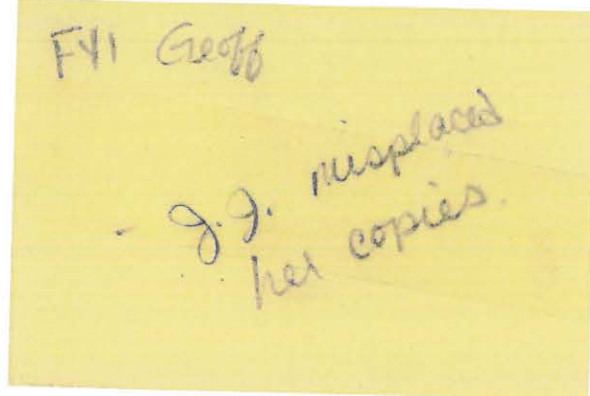 FYI Geoff
- J.J. misplaced
her copies.